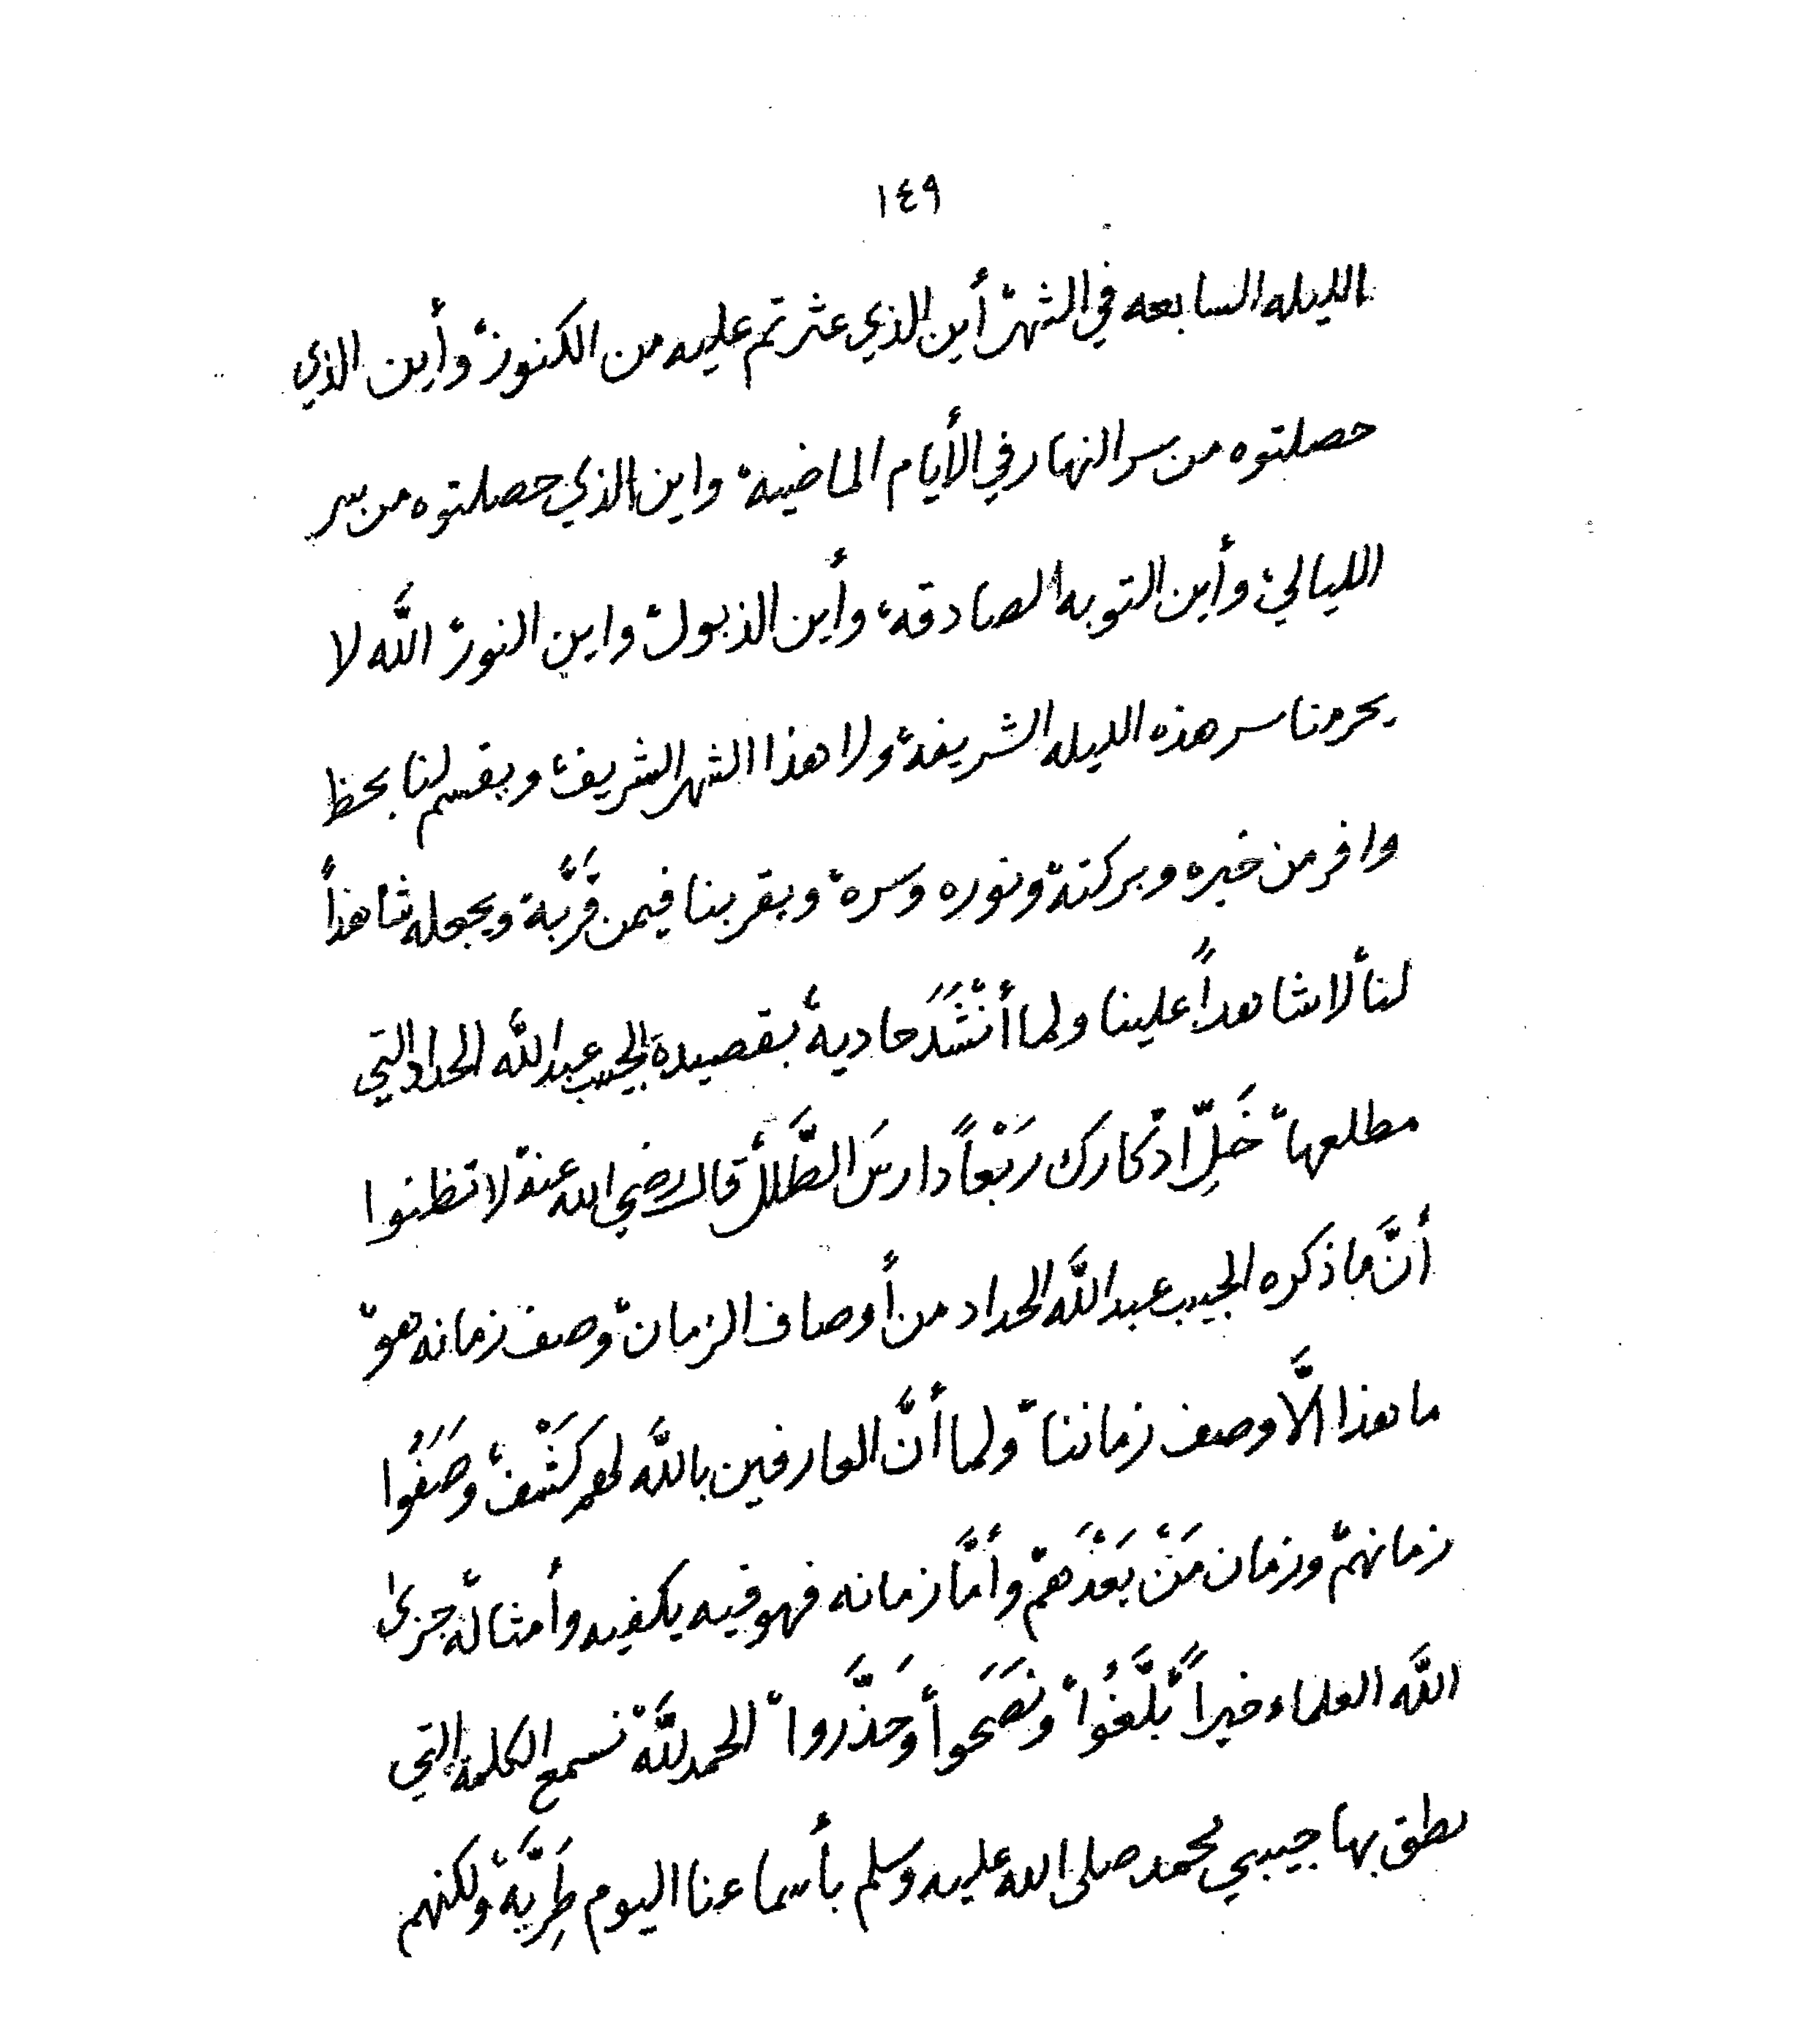 ١٤٩
الليله السابعه في الشهر، أين الذي عثرتم عليه من الكنوز، وأين الذي
حصلتوه من سر النهار في الأيام الماضية، واين الذي حصلتوه من سر
الليالي، وأين التوبه الصادقه، وأين الذبول، واين النور، اللَّه لا
يحرمنا سر هذه الليله الشريفة، ولا هذا الشهر الشريف، ويقسم لنا بحظ
وافر من خيره وبركته، ونوره وسره، ويقربنا فيمن قَرَّبَة ويجعله شاهداً
لنا، لا شاهداً علينا ولما أنْشَدَ حادية، بقصيدة الحبيب عبد اللَّه الحداد التي
مطلعها، خَلِّ ادّكارك رَبْعاً دارسَ الطَّلَلِ، قال رضي الله عنه، لا تظنوا
أنَّ ما ذكره الحبيب عبد اللَّه الحداد من أوصاف الزمان، وصف زمانه هو،
ما هذا الَّا وصف زماننا، ولما أنَّ العارفين باللَّه لهم كَشْف، وَصَفُوا
زمانهم، وزمان مَنْ بَعْدَهم، وأمَّا زمانه فهو فيه يكفيه وأمثاله، جزىٰ
اللَّه العلماء خيراً، بَلَّغُوا، ونَصَحوا، وحَذَّروا، الحمد للَّه، نسمع الكلمة التي
نطق بها حبيبي محمد صلى الله عليه وسلم بأسماعنا اليوم طَرِيَّة، ولكنهم